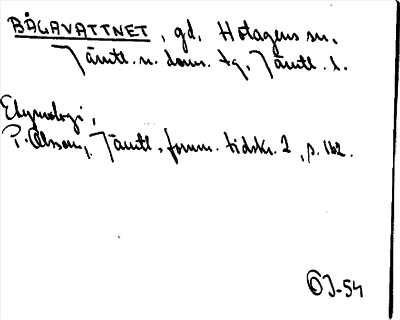 BÅGAVATTNET, gd, Hotagens sn.
Jämtl. n. doms. tg, Jämtl. l.
Etymologi,
P. Olsson, Jämtl. fornm. tidskr. 2, p. 162.
OJ-54